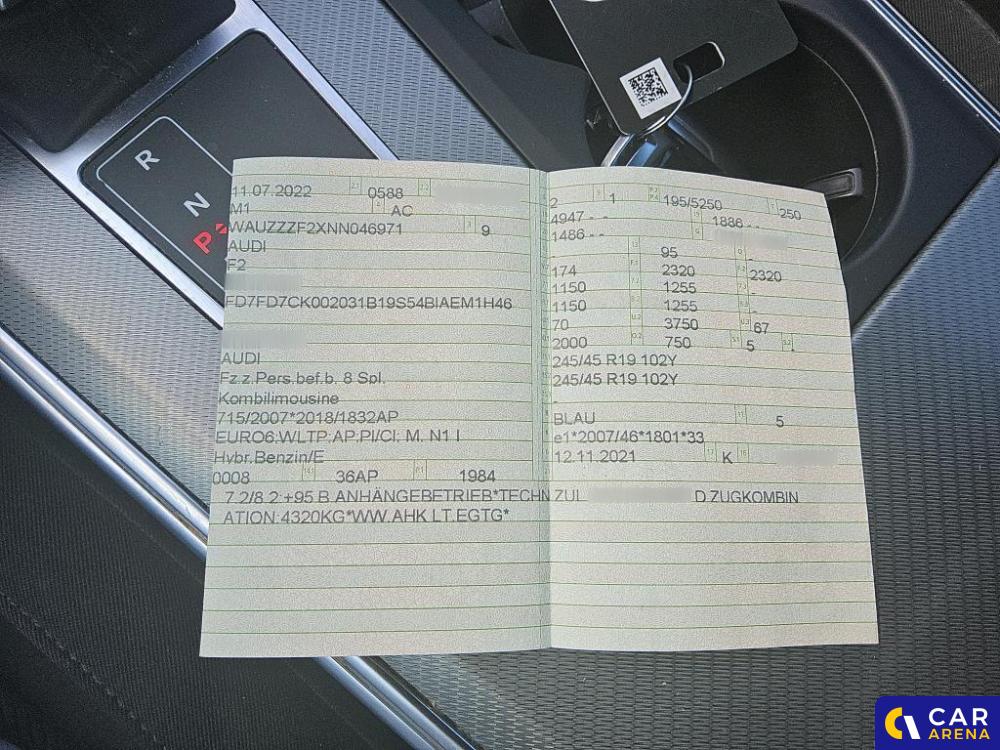 R
N
P
11.07.2022 0588
M1 AC
WAUZZZF2XNN046971 9
AUDI
F2
FD7FD7CK002031B19S54BIAEM1H46
AUDI
Fz.z.Pers.bef.b. 8 Spl.
Kombilimousine
715/2007*2018/1832AP
EURO6;WLTP;AP;PI/CI; M, N1 I
Hybr.Benzin/E
0008 36AP 1984
2 1 195/5250 250
4947 - - 1886 - -
1486 - -
95 -
174 2320 2320
1150 1255 -
1150 1255 -
70 3750 67
2000 750 5
245/45 R19 102Y
245/45 R19 102Y
BLAU 5
e1*2007/46*1801*33
12.11.2021 K
7.2/8.2:+95 B.ANHÄNGEBETRIEB*TECHN ZUL D.ZUGKOMBIN
ATION:4320KG*WW.AHK LT.EGTG*
CAR
ARENA